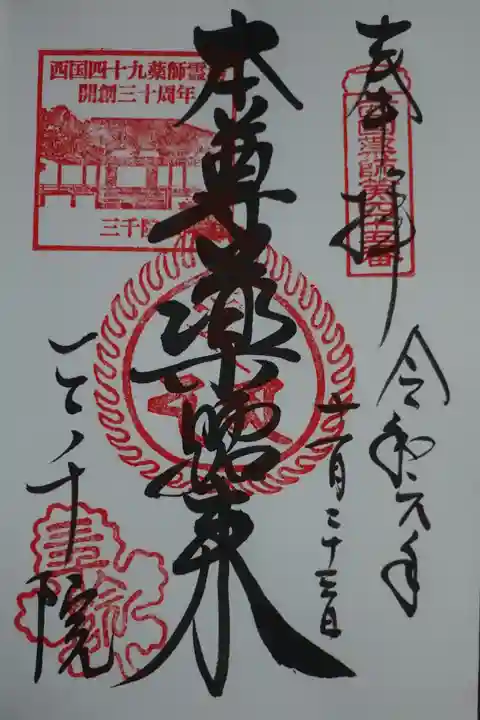 奉拝
西国薬師第四十五番
令和元年
十一月二十三日
本尊薬師如来
西国四十九薬師霊
開創三十周年
三千院
三千院